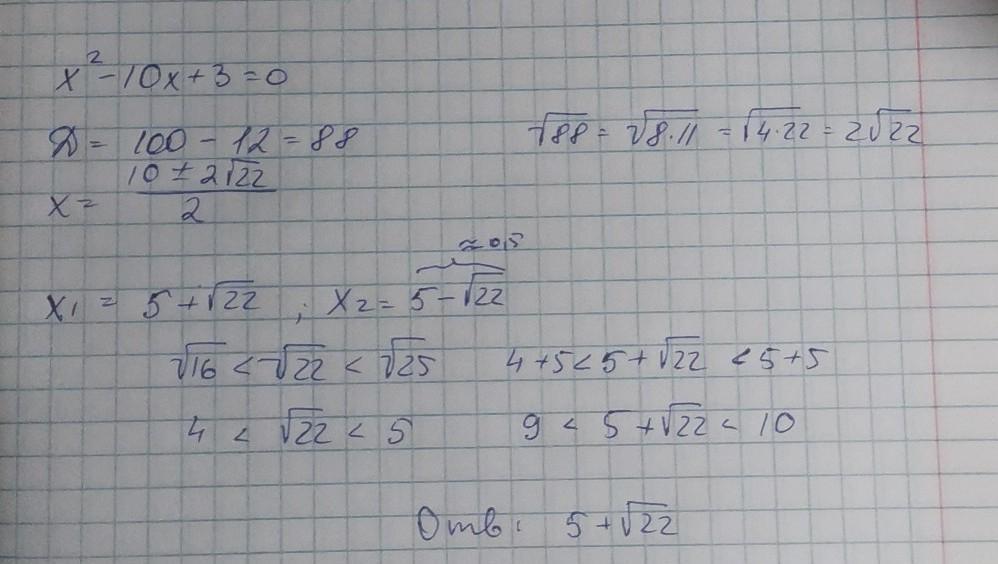 x² - 10x + 3 = 0
D = 100 - 12 = 88
√88 = √8·11 = √4·22 = 2√22
x = (10 ± 2√22)/2
≈0,5
x₁ = 5 + √22 ; x₂ = 5 - √22
√16 < √22 < √25
4 + 5 < 5 + √22 < 5 + 5
4 < √22 < 5
9 < 5 + √22 < 10
Отв: 5 + √22